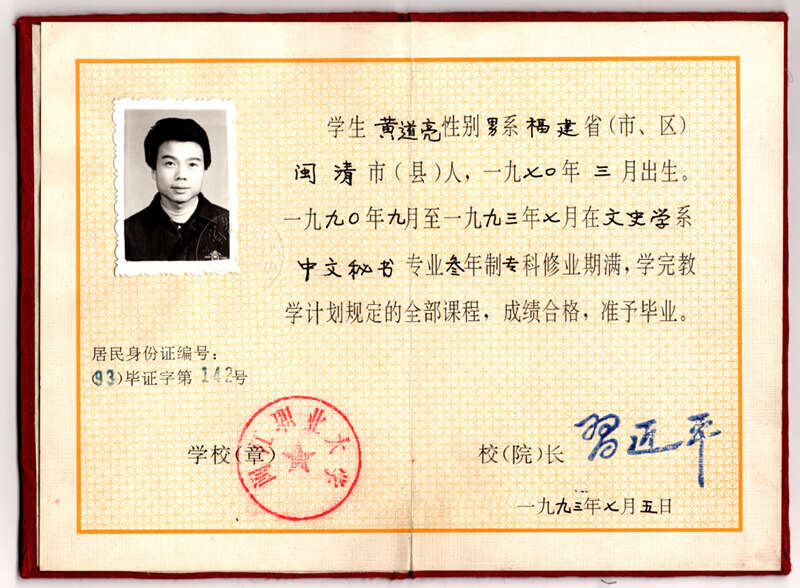 学生黄道亮性别男系福建省(市、区)
闽清市(县)人，一九七〇年三月出生。
一九九〇年九月至一九九三年七月在文史学系
中文秘书专业叁年制专科修业期满，学完教
学计划规定的全部课程，成绩合格，准予毕业。
居民身份证编号：
(93)毕证字第142号
学校(章)
闽江职业大学
校(院)长 習近平
一九九三年七月五日